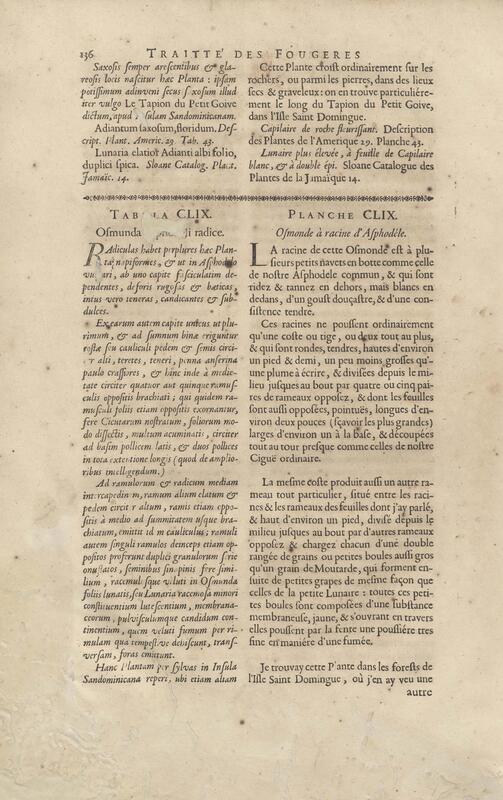 136 TRAITTÉ DES FOUGERES
Saxosis semper arescentibus & gla-
reosis locis nascitur hæc Planta : ipsam
potissimum adinveni secus saxosum illud
iter vulgo Le Tapion du Petit Goive
dictum, apud Insulam Sandominicanam.
Adiantum saxosum, floridum. Des-
cript. Plant. Americ. 29. Tab. 43.
Lunaria elatior Adianti albi folio,
duplici spica. Sloane Catalog. Plant.
Jamaïc. 14.
TABULA CLIX.
Osmunda radice.
RAdiculas habet perplures hæc Plan-
ta, napiformes, & ut in Asphodelo
vulgari, ab uno capite fasciculatim de-
pendentes, deforis rugosas & bæticas,
intus vero teneras, candicantes & sub-
dulces.
Ex earum autem capite unicus ut plu-
rimum, & ad summum binæ eriguntur
costæ seu cauliculi pedem & semis circi-
ter alti, teretes, teneri, penna anserina
paulo crassiores, & hinc inde à medie-
tate circiter quatuor aut quinque ramus-
culis oppositis brachiati ; qui quidem ra-
musculi foliis etiam oppositis exornantur,
fere Cicutarum nostratum, foliorum mo-
do dissectis, multum acuminatis, circiter
ad basim pollicem latis, & duos pollices
in tota extensione longis (quod de amplio-
ribus intelligendum.)
Ad ramulorum & radicum mediam
intercapedinem, ramum alium elatum &
pedem circiter altum, ramis etiam oppo-
sitis à medio ad summitatem usque bra-
chiatum, emittit idem cauliculus ; ramuli
autem singuli ramulos deinceps etiam op-
positos proferunt duplici granulorum serie
onustatos, seminibus sinapinis fere simi-
lium, racemulisque veluti in Osmunda
foliis lunatis, seu Lunaria racemosa minori
constituentium lutescentium, membrana-
ceorum, pulvisculumque candidum con-
tinentium, quem veluti fumum per ri-
mulam qua tempestive dehiscunt, trans-
versam, foras emittunt.
Hanc Plantam per sylvas in Insula
Sandominicana reperi, ubi etiam aliam
Cette Plante croist ordinairement sur les
rochers, ou parmi les pierres, dans des lieux
secs & graveleux : on en trouve particuliére-
ment le long du Tapion du Petit Goive,
dans l'Isle Saint Domingue.
Capilaire de roche fleurissant. Description
des Plantes de l'Amerique 29. Planche 43.
Lunaire plus élevée, à feuille de Capilaire
blanc, & à double épi. Sloane Catalogue des
Plantes de la Jamaïque 14.
PLANCHE CLIX.
Osmonde à racine d'Asphodéle.
LA racine de cette Osmonde est à plu-
sieurs petits navets en botte comme celle
de nostre Asphodele commun, & qui sont
ridez & tannez en dehors, mais blancs en
dedans, d'un goust douçastre, & d'une con-
sistence tendre.
Ces racines ne poussent ordinairement
qu'une coste ou tige, ou deux tout au plus,
& qui sont rondes, tendres, hautes d'environ
un pied & demi, un peu moins grosses qu'u-
ne plume à écrire, & divisées depuis le mi-
lieu jusques au bout par quatre ou cinq pai-
res de rameaux opposez, & dont les feuilles
sont aussi opposées, pointuës, longues d'en-
viron deux pouces (sçavoir les plus grandes)
larges d'environ un à la base, & découpées
tout au tour presque comme celles de nostre
Ciguë ordinaire.
La mesme coste produit aussi un autre ra-
meau tout particulier, situé entre les raci-
nes & les rameaux des feuilles dont j'ay parlé,
& haut d'environ un pied, divisé depuis le
milieu jusques au bout par d'autres rameaux
opposez & chargez chacun d'une double
rangée de grains ou petites boules aussi gros
qu'un grain de Moutarde, qui forment en-
suite de petites grapes de mesme façon que
celles de la petite Lunaire : toutes ces pe-
tites boules sont composées d'une substance
membraneuse, jaune, & s'ouvrant en travers
elles poussent par la fente une poussiére tres
fine en maniére d'une fumée.
Je trouvay cette Plante dans les forests de
l'Isle Saint Domingue, où j'en ay veu une
autre